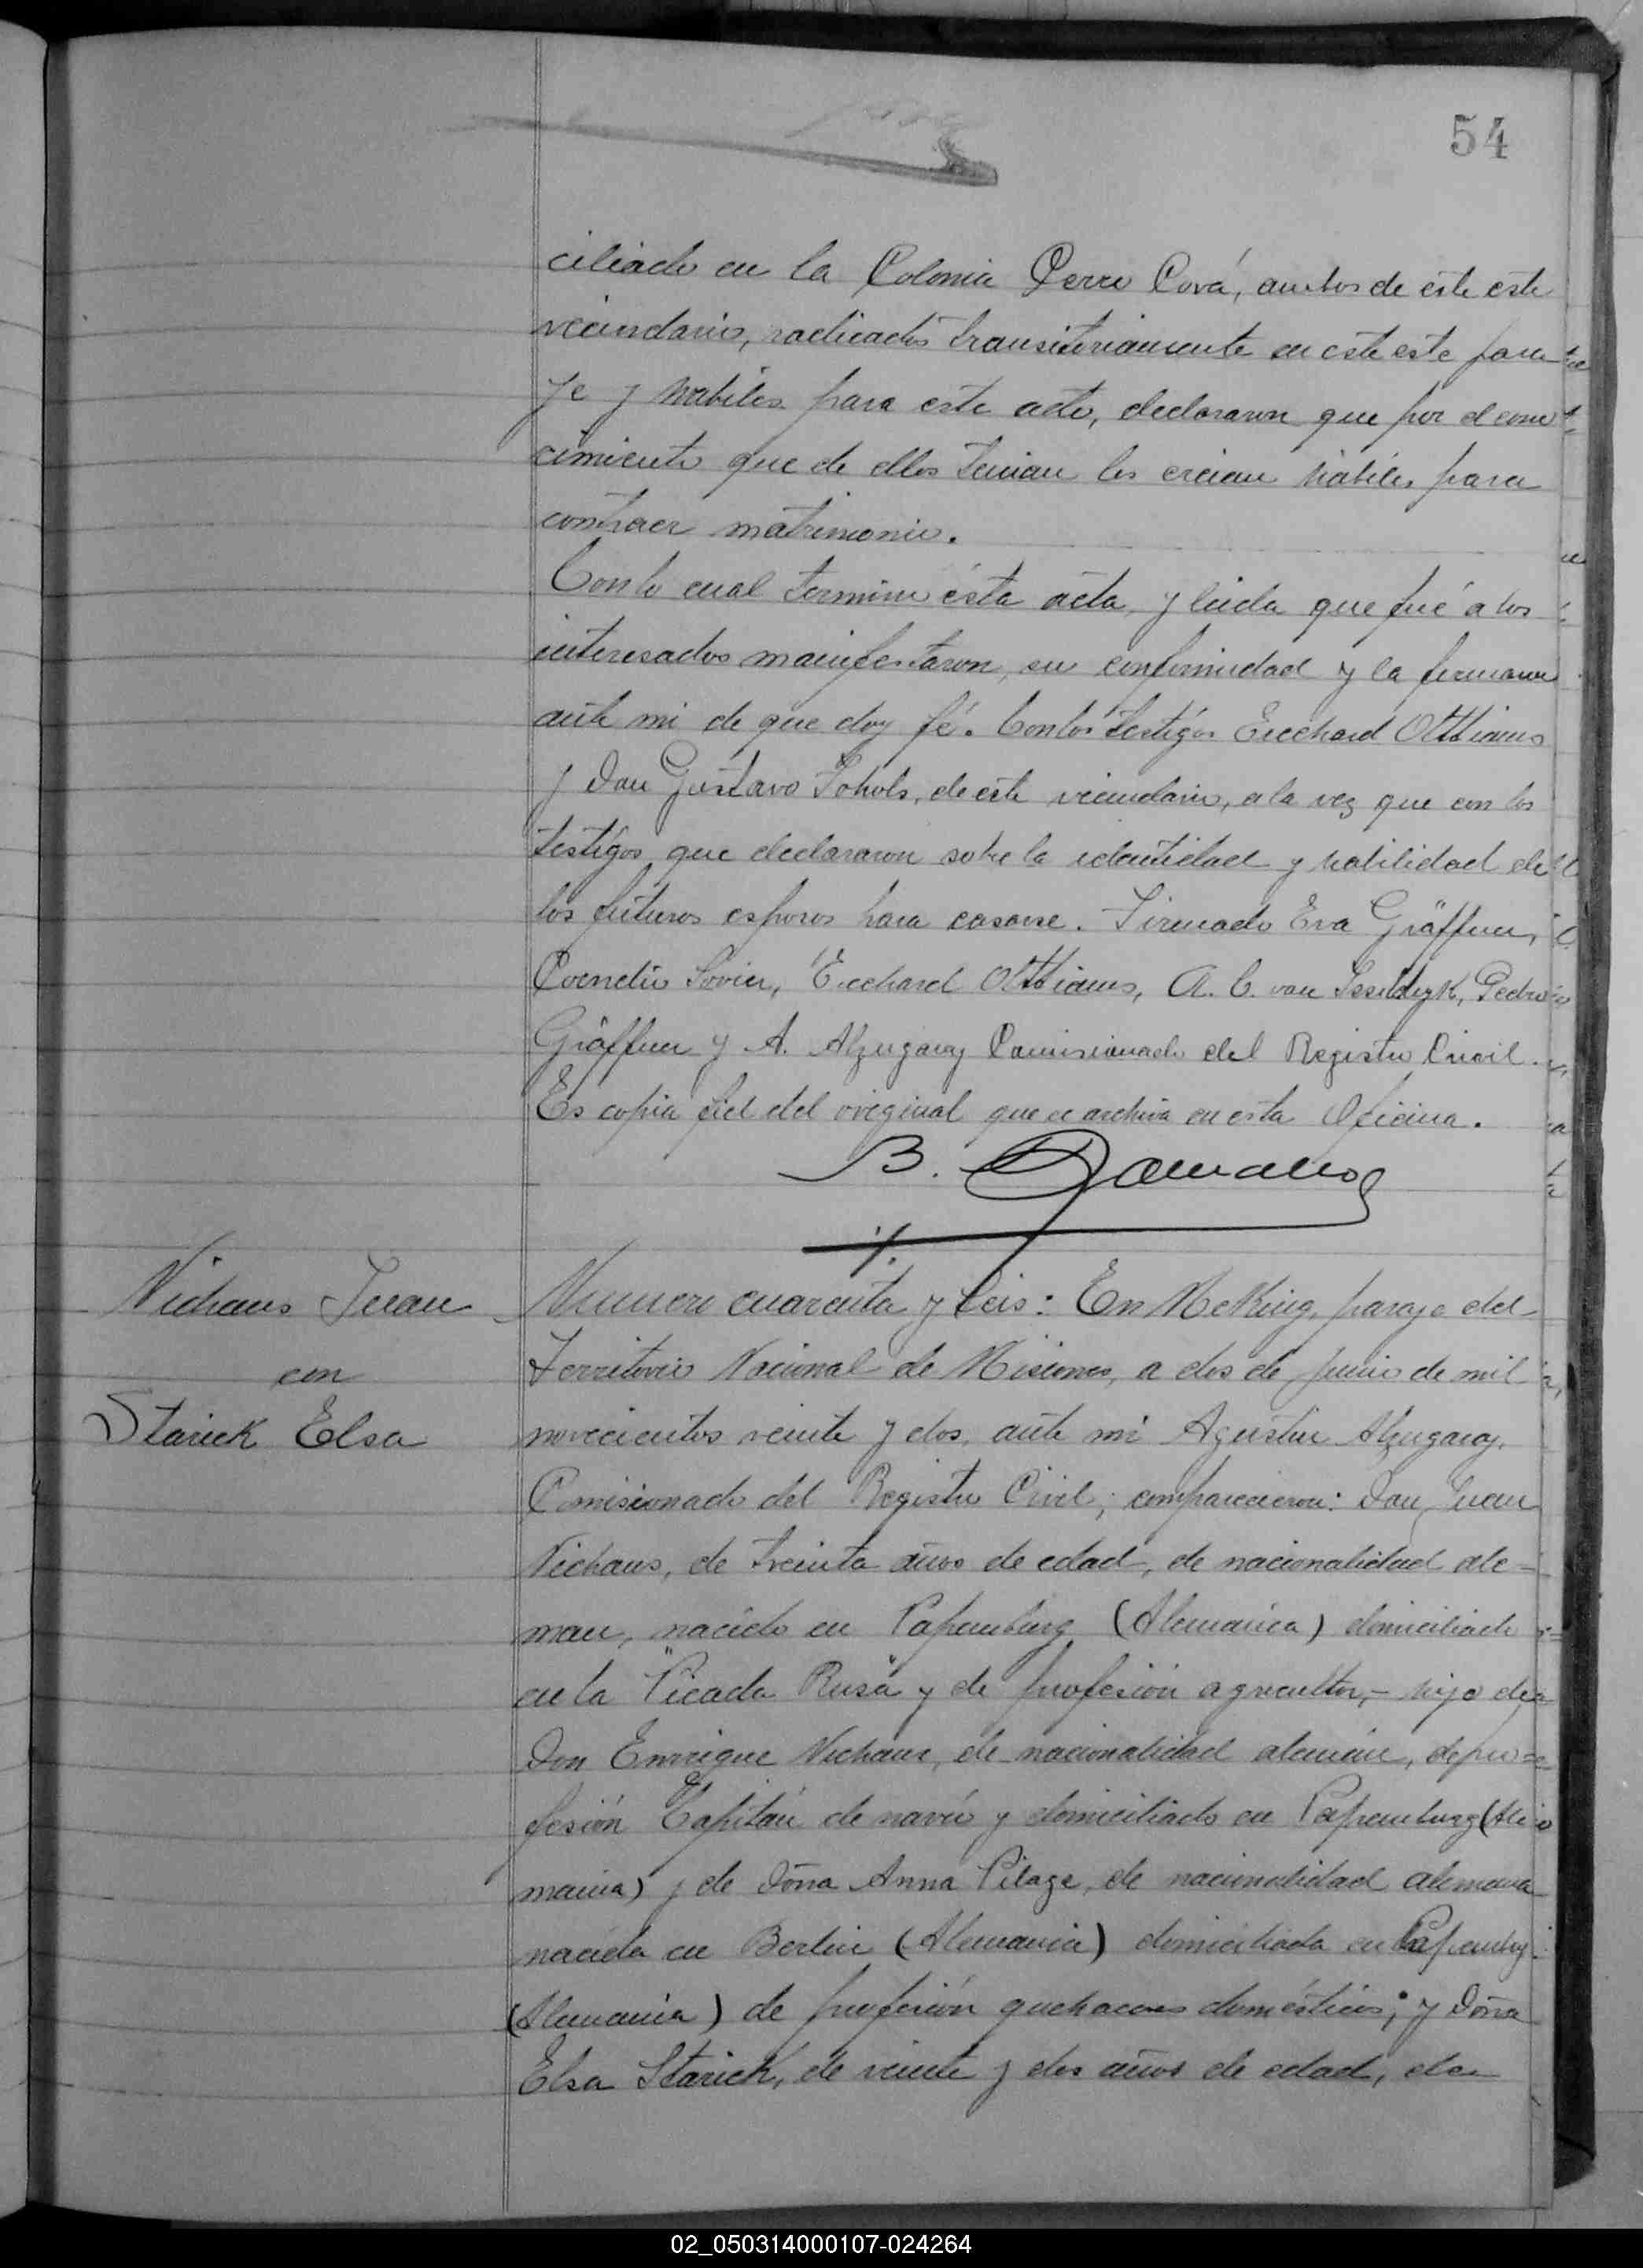 54
ciliado en la Colonia Cerro Corá, ambos de este este
vecindario, radicados transitoriamente en este este para
je y habiles para este acto, declararon que por el cono
cimiento que de ellos tenian los creian hábiles para
contraer matrimonio.
Con lo cual termino ésta acta, y leida que fué a los
interesados manifestaron, su conformidad y la firmaron
ante mi de que doy fé. Con los testigos Ecchard Olttianus
y Don Gustavo de este vecindario, a la vez que con los
testigos que declararon sobre la identidad y habilidad de
los futuros esposos para casarse. Firmado Eva Gräffner,
Cornelio Ecchard Olttianus, A. C. van Pedro
Gräffner y A. Alzugaray Comisionado del Registro Civil.
Es copia fiel del original que se archiva en esta Oficina.
B.
Niehaus Juan
con
Starick Elsa
Numero cuarenta y seis: En McKing, paraje del
Territorio Nacional de Misiones, a dos de junio de mil
novecientos veinte y dos, ante mi Agustin Alzugaray,
Comisionado del Registro Civil; comparecieron: Don Juan
Niehaus, de treinta años de edad, de nacionalidad ale-
man, nacido en Papemburg (Alemania) domiciliado
en la "Picada Rusa" y de profesión agricultor,- hijo de
Don Enrrique Niehaus, de nacionalidad alemán, de pro-
fesión Capitán de navío y domiciliado en Papemburg (Ale
mania) y de Doña Anna Pilage, de nacionalidad alemana
nacida en Berlin (Alemania) domiciliada en Papemburg
(Alemania) de profesión quehaceres domésticos; y Doña
Elsa Starick, de veinte y dos años de edad, de
02_050314000107-024264